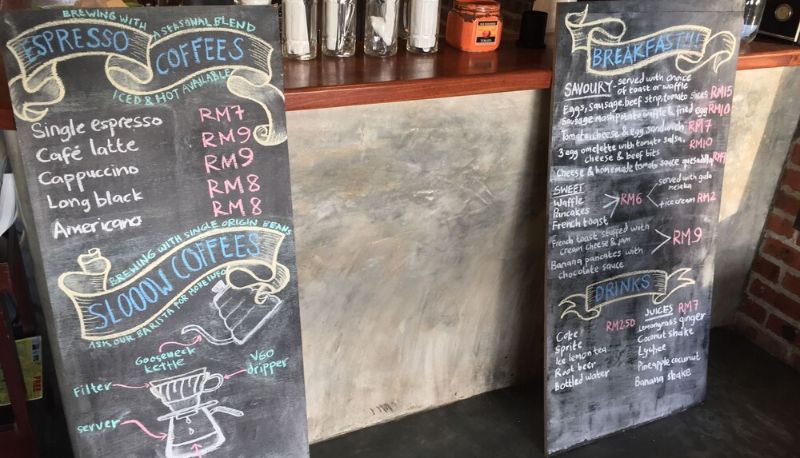 BREWING WITH A SEASONAL BLEND
ESPRESSO COFFEES
ICED & HOT AVAILABLE
Single espresso RM7
Café latte RM9
Cappuccino RM9
Long black RM8
Americano RM8
BREWING WITH SINGLE ORIGIN BEANS
SLOOOW COFFEES
ASK OUR BARISTA FOR MORE INFO
Gooseneck
kettle
V60
dripper
Filter
server
BREAKFAST!!!
SAVOURY - served with choice
of toast or waffle
Eggs, sausage, beef strip, tomato slices RM15
Sausage, mash potato waffle & fried egg RM10
Tomato, cheese & egg sandwich RM7
3 egg omelette with tomato salsa, RM10
cheese & beef bits
Cheese & homemade tomato sauce quesadilla
SWEET
Waffle
Pancakes
French toast
RM6
served with gula
melaka
+ ice cream RM2
French toast stuffed with
cream cheese & jam
RM9
Banana pancakes with
chocolate sauce
DRINKS
RM2.50
Coke
Sprite
Ice lemon tea
Root beer
Bottled water
JUICES RM7
Lemongrass ginger
Coconut shake
Lychee
Pineapple coconut
Banana shake